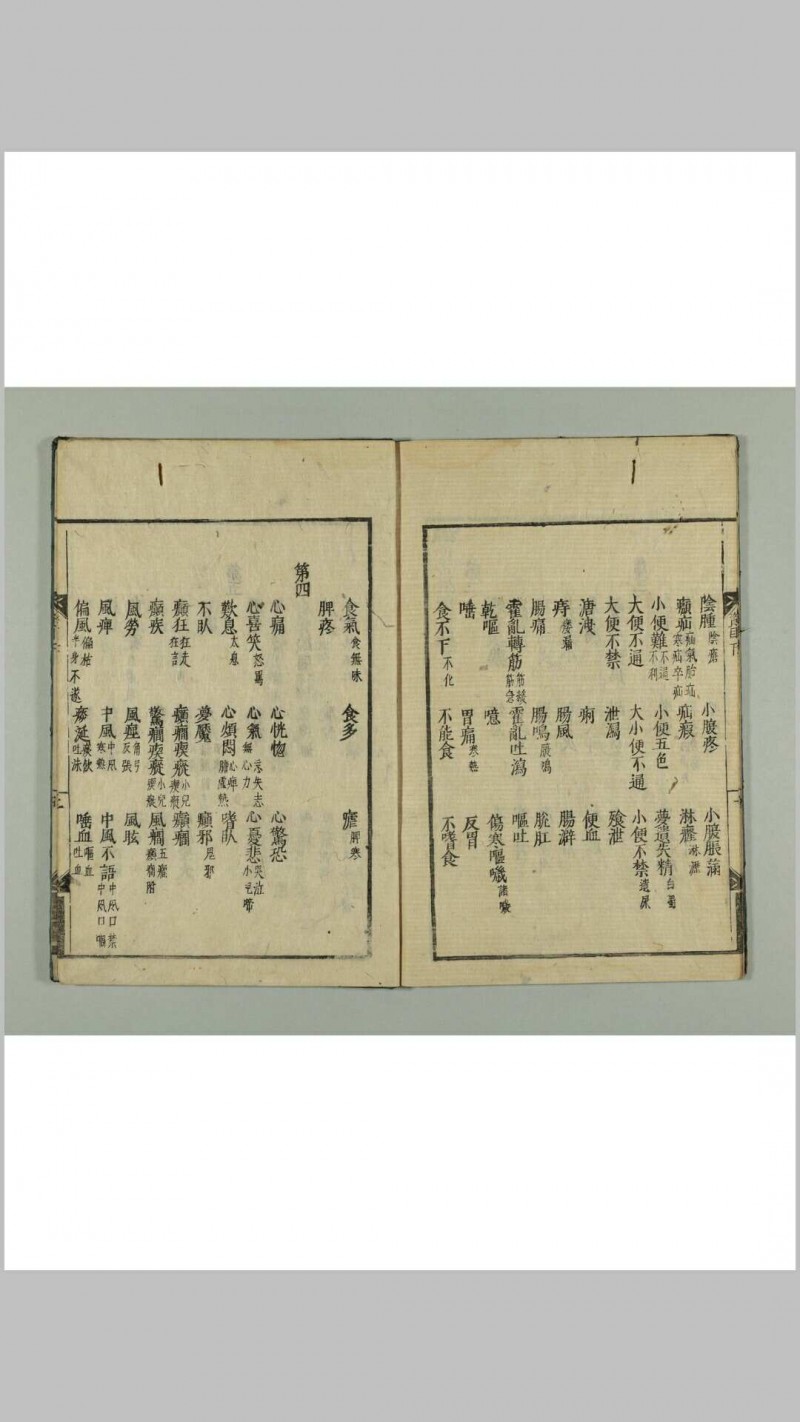 陰腫陰瘡 小腹疼 小腹脹滿
㿗疝疝氣胎疝寒疝卒疝 疝瘕 淋癃淋瀝
小便難不通不利 小便五色 夢遺失精白濁
大便不通 大小便不通 小便不禁遺尿
大便不禁 泄瀉 飧泄
溏洩 痢 便血
痔瘻痛 腸風 腸澼
腸痛 腸鳴腹鳴 脫肛
霍亂轉筋筋緩筋急 霍亂吐瀉 嘔吐
乾嘔 噫 傷寒嘔噦諸噦
噎 胃痛寒熱 反胃
食不下不化 不能食 不嗜食
食氣食無味 食多 瘧脾寒
脾疼
第四
心痛 心恍惚 心驚恐
心喜笑怒罵 心氣忘失志無心力 心憂悲哭泣小兒啼
歎息太息 心煩悶心痹膽虛熱 嗜臥
不臥 夢魘 癲邪鬼邪
癲狂狂走狂言 癲癇瘈瘲小兒瘈瘲 癲癇
癲疾 驚癇瘈瘲小兒瘈瘲 風癇五癇癇
風勞 風痙角弓反張 風眩
風痺 中風中風寒熱 中風不語中風口禁中風口喎
偏風偏枯半身不遂 痰涎痰飲吐沫 嘔血吐血